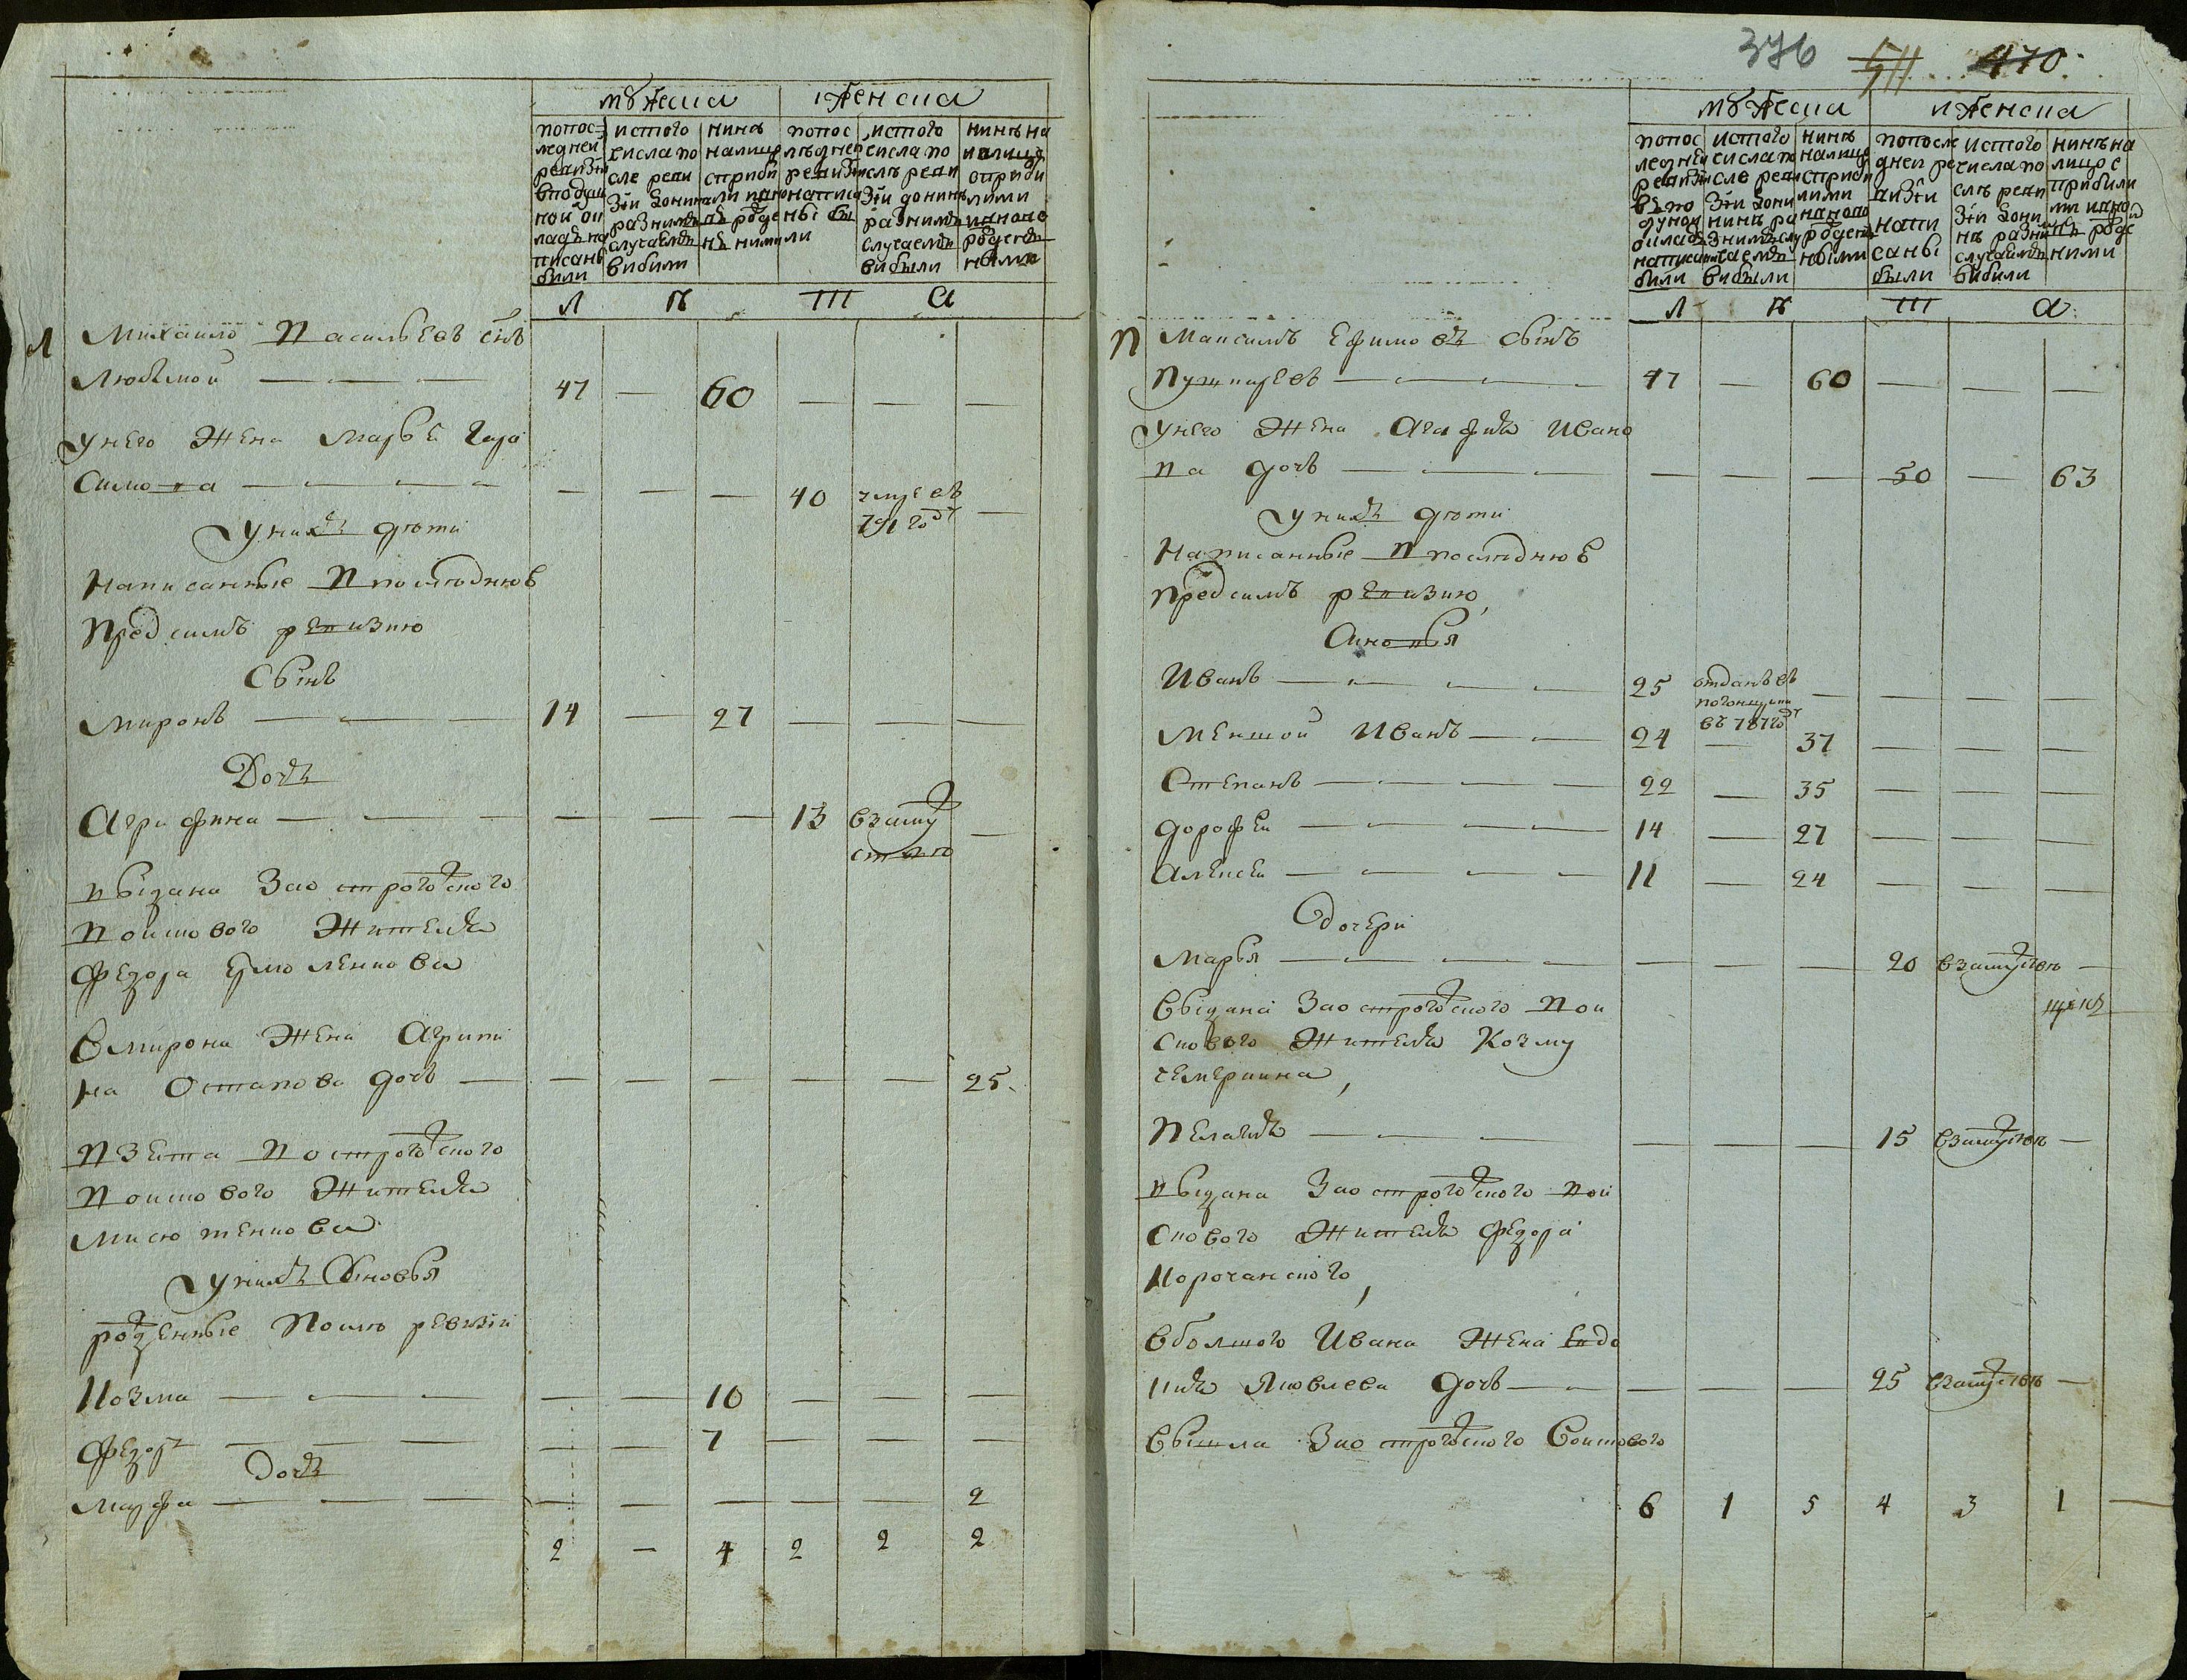 мужеска женска
попос=
ледней
ревизіи
вподуш
ной ок
ладъ на
писаны
были
истого
числа по
сле реви
зіи донине
разними
случаеми
вибили
нинѣ
налицо
сприби
лими и по
нов рожде
нними
попос
лѣдней
ревизіи
написа
ны бы
ли
истого
числа по
слѣ реви
зіи донинѣ
разними
случаеми
вибыли
нинѣ на
лицо
сприби
лими
и вново
рожден
ними
Михаило Васильевъ снъ
Любимой — — — 47 — 60 — — —
Унего Жена Марьѣ Гара
симова — — — — — — — 40 умре въ 791 год —
Унихъ дѣти
Написанные впослѣднюѣ
Предсимъ ревизию
Сынъ
Миронъ — — — 14 — 27 — — —
Дочь
Агрифина — — — — — — 13 взамуство —
выдана Заострогожского
Воискового Жителя
Федора Ермоленкова
Вмирона Жена Агрипи
на Остапова дочь — — — — — — 25
Взята Вострогожского
Воискового Жителя
Мисютенкова
Унихъ Сыновья
рожденные Послѣ ревизіи
Козма — — — — — 10 — — —
Федоръ — — — — — 7 — — —
Дочь
Марфа — — — — — — — — 2
2 — 4 2 2 2
376 511 470
мужеска женска
попос
ледней
ревизіи
въ по
душной
окладъ
написани
были
истого
числа по
сле реви
зіи дони
нинѣ ра
знимислу
чаеми
вибыли
нинѣ
налицо
сприби
лими
и вново
рожден
ными
попосле
дней ре
визіи
напи
саны
были
истого
числа по
слѣ реви
зіи дони
нѣ разни
случаими
вибили
нинѣ на
лицо с
прибили
ми и вно
въ рожде
ними
Максимъ Ефимовъ сынъ
Пушкаревъ — — — 47 — 60 — — —
Унего Жена Агафия Ивано
ва дочь — — — — — — 50 — 63
Унихъ дѣти
Написанные впослѣднюѣ
Предсимъ ревизию,
Сыновья
Иванъ — — — 25 отданъ въ погонщики въ 787 год — — — —
Меншой Иванъ — — 24 — 37 — — —
Степанъ — — — 22 — 35 — — —
Дорофѣи — — — 14 — 27 — — —
Алексѣи — — — 11 — 24 — — —
Дочери
Марья — — — — — — 20 взамуствѣ —
Выдана Заострогожского Вои
скового Жителя Козму
Чемеркина,
Пелагия — — — — — — 15 взамуствѣ —
выдана Заострогожского Вои
скового Жителя Федора
Корочанского,
Вболшого Ивана Жена Евдо
кия Яковлева дочь — — — — — 25 взамуствѣ —
Вышла Заострогожского Воискового
6 1 5 4 3 1 —